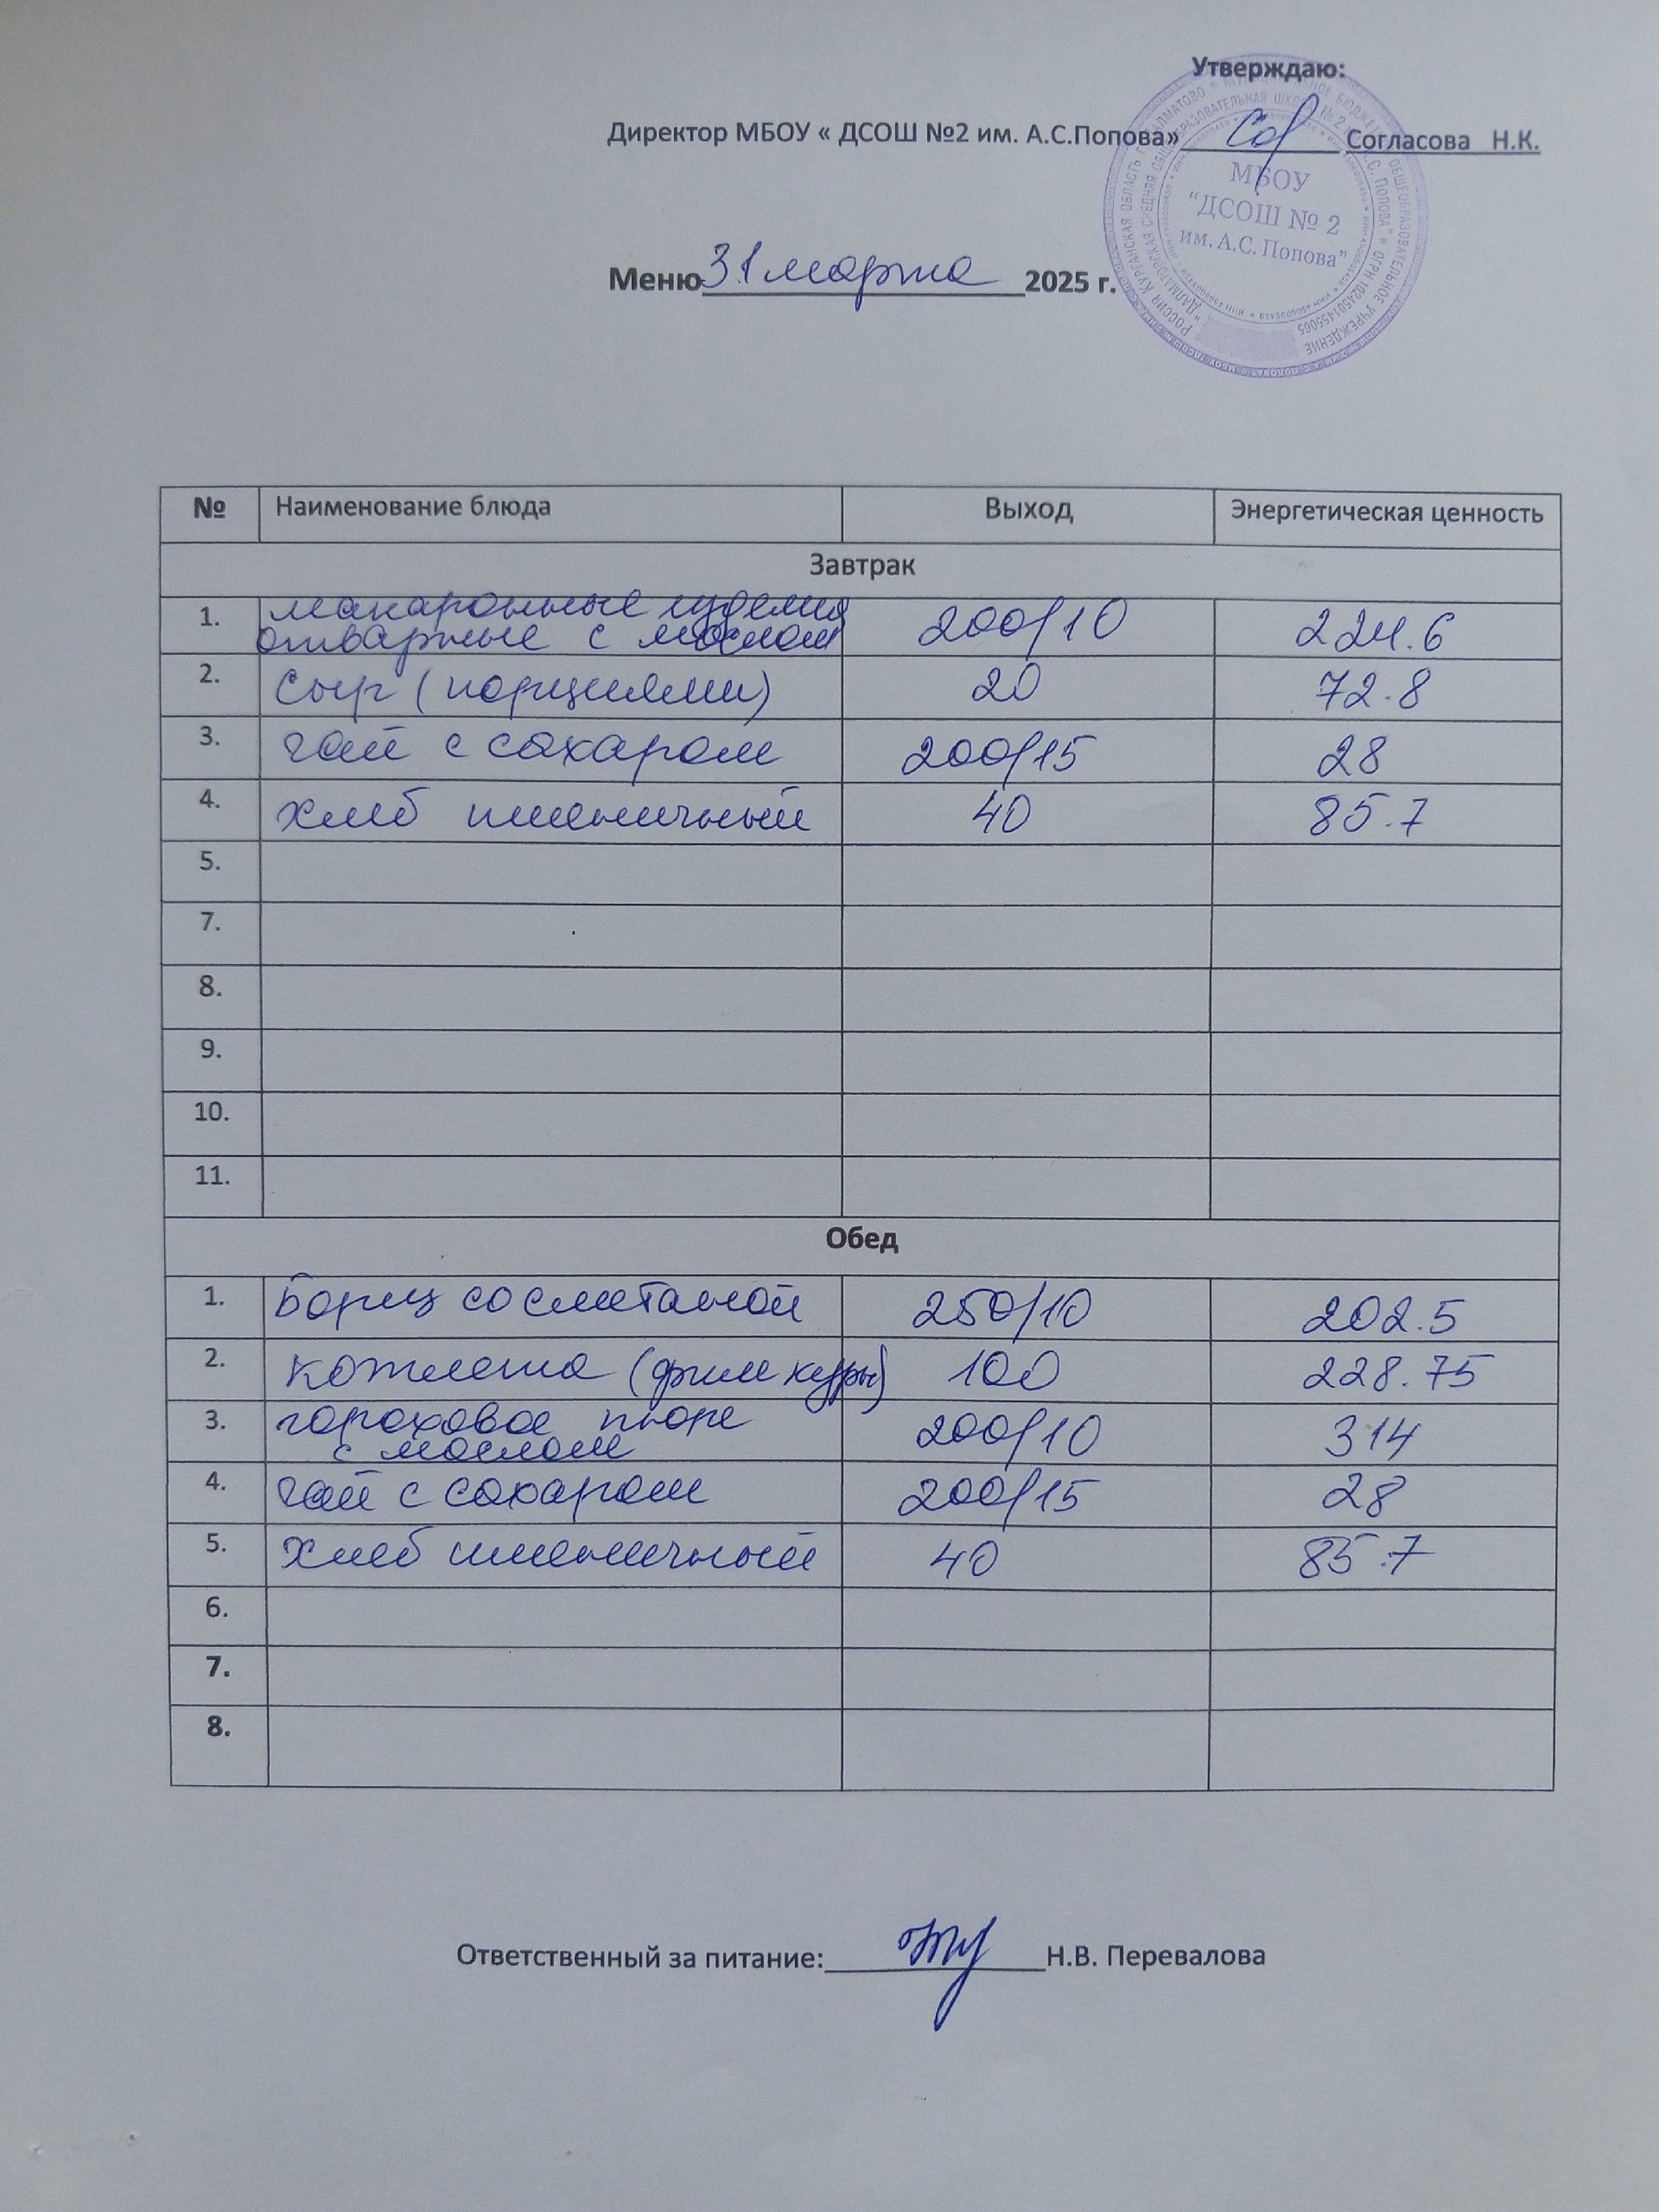 Утверждаю:
Директор МБОУ « ДСОШ №2 им. А.С.Попова» Согласова Н.К.
МБОУ
"ДСОШ № 2
им. А.С. Попова"
Меню 31 марта 2025 г.
№ Наименование блюда Выход Энергетическая ценность
Завтрак
1. макаронные изделия
отварные с маслом 200/10 224.6
2. Сыр (порциями) 20 72.8
3. чай с сахаром 200/15 28
4. хлеб пшеничный 40 85.7
5.
7.
8.
9.
10.
11.
Обед
1. Борщ со сметаной 250/10 202.5
2. котлета (филе куры) 100 228.75
3. гороховое пюре
с маслом 200/10 314
4. чай с сахаром 200/15 28
5. хлеб пшеничный 40 85.7
6.
7.
8.
Ответственный за питание: Н.В. Перевалова